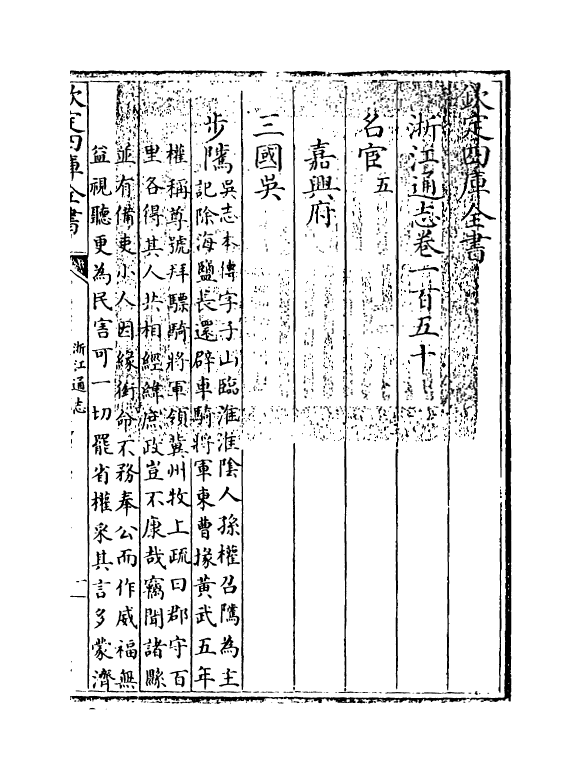 欽定四庫全書
浙江通志卷一百五十
名宦五
嘉興府
三國吳
步隲吳志本傳字子山臨淮淮陰人孫權召隲為主
記除海鹽長還辟車騎將軍東曹掾黃武五年
權稱尊號拜驃騎將軍領冀州牧上疏曰郡守百
里各得其人共相經緯庶政豈不康哉竊聞諸縣
並有備吏小人因緣銜命不務奉公而作威福無
益視聽更為民害可一切罷省權采其言多蒙濟
欽定四庫全書
浙江通志